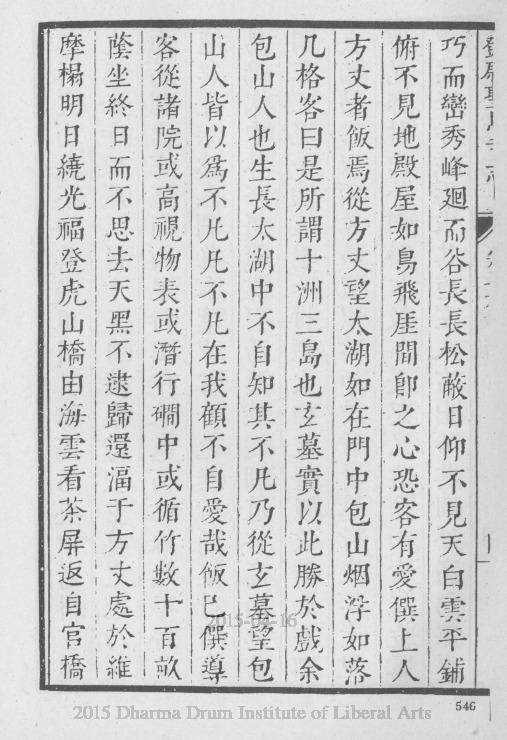 巧而巒秀峰迴而谷長長松蔽日仰不見天白雲平鋪
俯不見地殿屋如鳥飛厓間卽之心恐客有愛僎上人
方丈者飯焉從方丈望太湖如在門中包山烟浮如落
几格客曰是所謂十洲三島也玄墓實以此勝於戲余
包山人也生長太湖中不自知其不凡乃從玄墓望包
山人皆以爲不凡凡不凡在我顧不自愛哉飯已僎導
客從諸院或高視物表或潛行磵中或循竹數十百畝
蔭坐終日而不思去天黑不逮歸還湢于方丈處於維
摩榻明日繞光福登虎山橋由海雲看茶屏返自官橋
546
2015-04-16
2015 Dharma Drum Institute of Liberal Arts